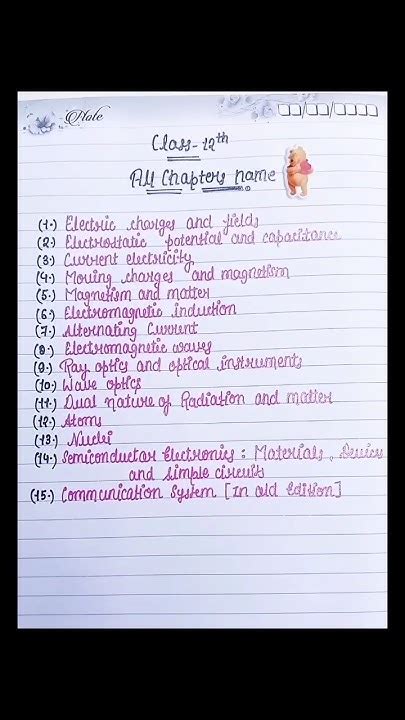 Note
Class-12th
All Chapters name
(1.) Electric charges and fields
(2.) Electrostatic potential and capacitance
(3.) Current electricity
(4.) Moving charges and magnetism
(5.) Magnetism and matter
(6.) Electromagnetic induction
(7.) Alternating Current
(8.) Electromagnetic waves
(9.) Ray optics and optical instruments
(10.) Wave optics
(11.) Dual nature of Radiation and matter
(12.) Atoms
(13.) Nuclei
(14.) Semiconductor Electronics : Materials, Devices
and simple circuits
(15.) Communication System [In old Edition]